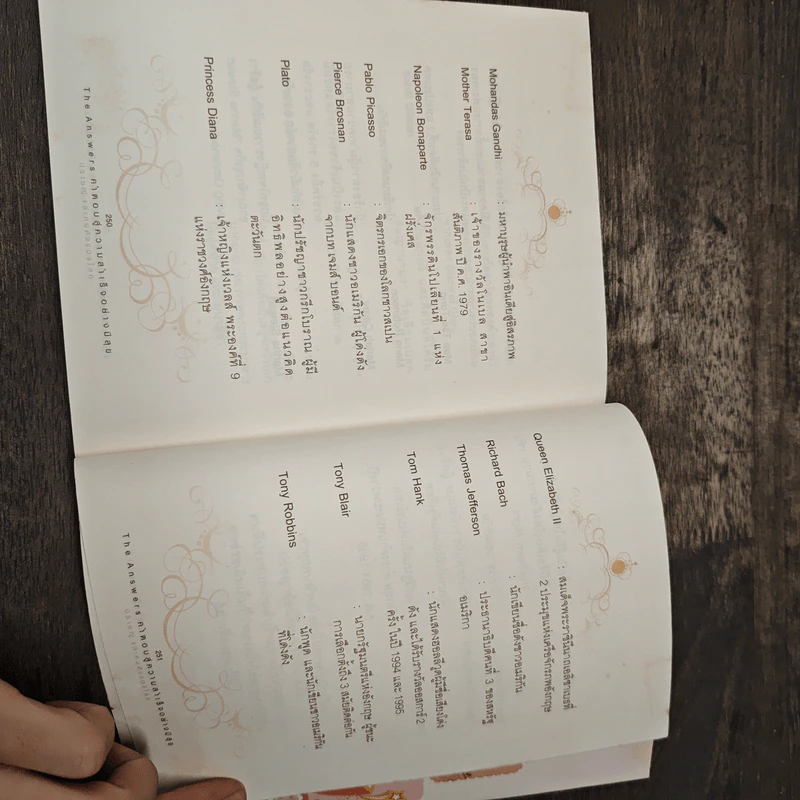 Mohandas Gandhi : มหาบุรุษผู้นำพาอินเดียสู่อิสรภาพ
Mother Terasa : เจ้าของรางวัลโนเบล สาขา
สันติภาพ ปี ค.ศ. 1979
Napoleon Bonaparte : จักรพรรดินโปเลียนที่ 1 แห่ง
ฝรั่งเศส
Pablo Picasso : จิตรกรเอกของโลกชาวสเปน
Pierce Brosnan : นักแสดงชาวอเมริกัน ผู้โด่งดัง
จากบท เจมส์ บอนด์
Plato : นักปรัชญาชาวกรีกโบราณ ผู้มี
อิทธิพลอย่างสูงต่อแนวคิด
ตะวันตก
Princess Diana : เจ้าหญิงแห่งเวลส์ พระองค์ที่ 9
แห่งราชวงศ์อังกฤษ
250
The Answers คำตอบสู่ความสำเร็จอย่างมีสุข
Queen Elizabeth II : สมเด็จพระราชินีนาถเอลิซาเบธที่
2 ประมุขแห่งเครือจักรภพอังกฤษ
Richard Bach : นักเขียนชื่อดังชาวอเมริกัน
Thomas Jefferson : ประธานาธิบดีคนที่ 3 ของสหรัฐ
อเมริกา
Tom Hank : นักแสดงฮอลลีวูดผู้มีชื่อเสียงโด่ง
ดัง และได้รับรางวัลออสการ์ 2
ครั้ง ในปี 1994 และ 1995
Tony Blair : นายกรัฐมนตรีแห่งอังกฤษ ผู้ชนะ
การเลือกตั้งถึง 3 สมัยติดต่อกัน
Tony Robbins : นักพูด และนักเขียนชาวอเมริกัน
ที่โด่งดัง
251
The Answers คำตอบสู่ความสำเร็จอย่างมีสุข